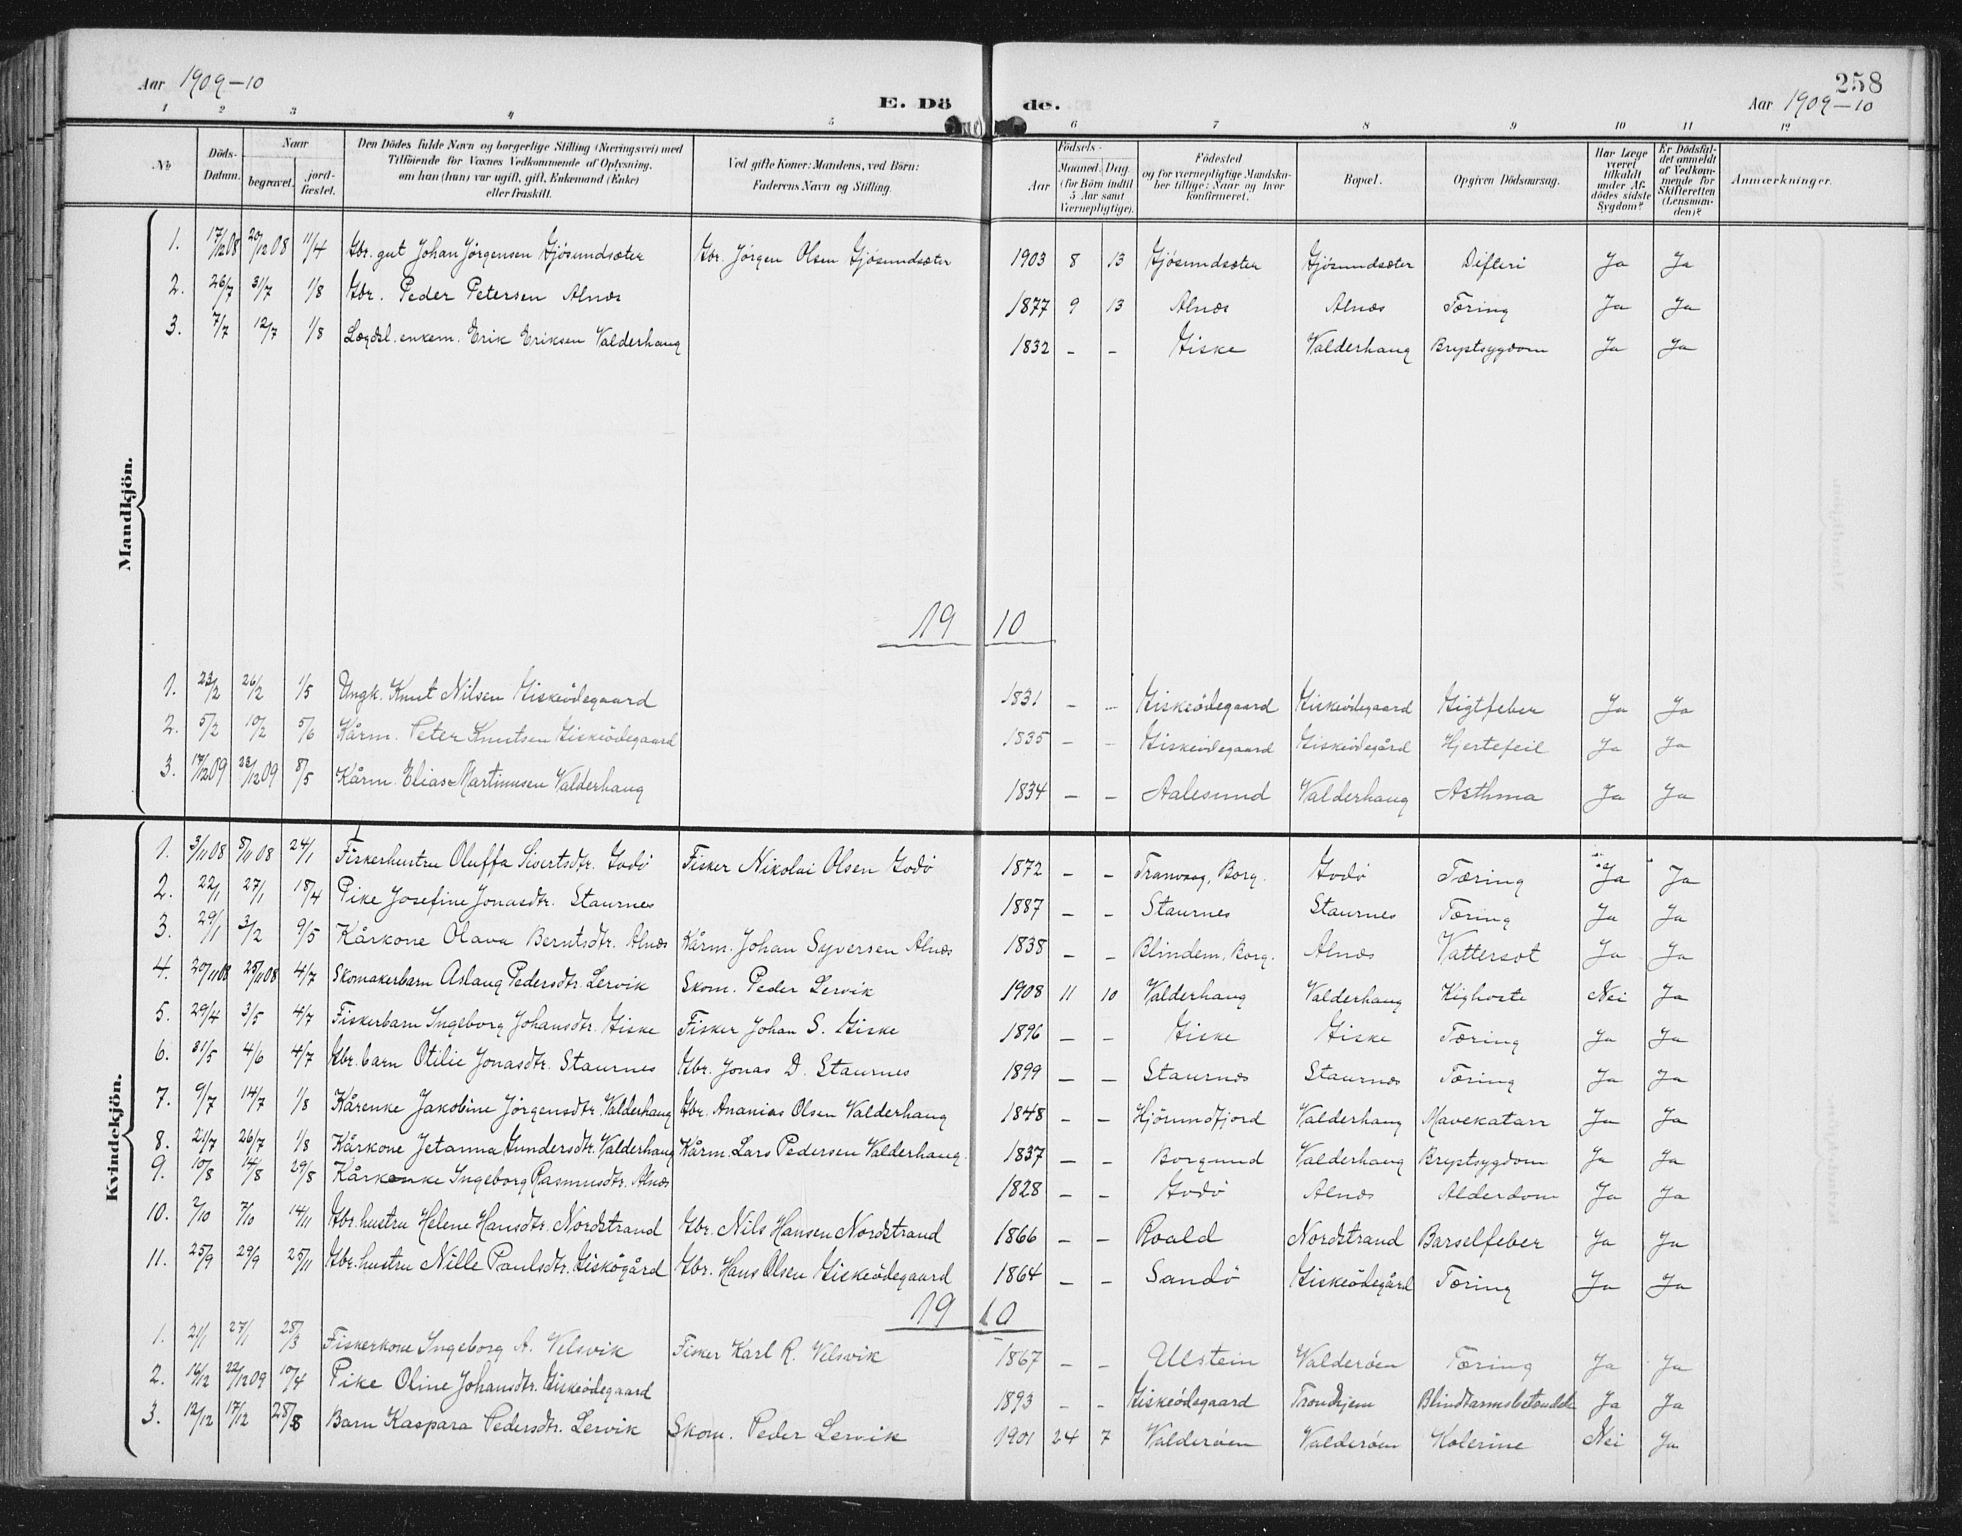 258
Aar 1909-10
E. Dö de.
Aar 1909-10
1 2 3 4 5 6 7 8 9 10 11 12
No. Döds-Datum. Naar begravet. jordfæstet. Den Dödes fulde Navn og borgerlige Stilling (Næringsvei) med Tilföiende for Voxnes Vedkommende af Oplysning, om han (hun) var ugift, gift, Enkemand (Enke) eller fraskilt. Ved gifte Koner: Mandens, ved Börn: Faderens Navn og Stilling. Födsels- Aar Maaned. Dag. (for Börn indtil 5 Aar samt Værnepligtige). Födested og for værnepligtige Mandskaber tillige: Naar og hvor konfirmeret. Bopæl. Opgiven Dödsaarsag. Har Læge været tilkaldt under Afdödes sidste Sygdom? Er Dödsfaldet anmeldt af Vedkommende for Skifteretten (Lensmanden)? Anmærkninger.
Mandkjön.
1. 17/12 08 20/12 08 11/4 Gbr. gut Johan Jörgensen Gjösundsæter Gbr. Jörgen Olsen Gjösundsæter 1903 8 13 Gjösundsæter Gjösundsæter Difteri Ja Ja
2. 26/7 31/7 1/8 Gbr. Peder Petersen Alnæs 1877 9 13 Alnæs Alnæs Tæring Ja Ja
3. 7/7 12/7 1/8 Lægdsl. enkem. Erik Eriksen Valderhaug 1832 - - Giske Valderhaug Brystsygdom Ja Ja
19 10
1. 23/2 26/2 1/5 Ungk. Knut Nilsen Giskeödegaard 1831 - - Giskeödegaard Giskeödegaard Gigtfeber Ja Ja
2. 5/2 10/2 5/6 Kårm. Peter Knutsen Giskeödegaard 1835 - - Giskeödegaard Giskeödegård Hjertefeil Ja Ja
3. 17/12 09 23/12 09 8/5 Kårm. Elias Martinusen Valderhaug 1834 - - Aalesund Valderhaug Asthma Ja Ja
Kvindekjön.
1. 3/11 08 8/11 08 24/1 Fiskerhustru Oluffa Sivertsdtr. Godö Fisker Nikolai Olsen Godö 1872 - - Tranvaag, Borg. Godö Tæring Ja Ja
2. 22/1 27/1 18/4 Pike Josefine Jonasdtr. Staurnes 1887 - - Staurnes Staurnes Tæring Ja Ja
3. 29/1 3/2 9/5 Kårkone Olava Berntsdtr. Alnæs Kårm. Johan Syversen Alnæs 1838 - - Blindem, Borg. Alnæs Vattersot Ja Ja
4. 20/11 08 25/11 08 4/7 Skomakerbarn Aslaug Pedersdtr. Lervik Skom. Peder Lervik 1908 11 10 Valderhaug Valderhaug Kighoste Nei Ja
5. 29/4 3/5 4/7 Fiskerbarn Ingeborg Johansdtr. Giske Fisker Johan S. Giske 1896 - - Giske Giske Tæring Ja Ja
6. 31/5 4/6 4/7 Gbr. barn Otilie Jonasdtr. Staurnes Gbr. Jonas D. Staurnes 1899 - - Staurnes Staurnes Tæring Ja Ja
7. 9/7 14/7 1/8 Kårenke Jakobine Jörgensdtr. Valderhaug Gbr. Ananias Olsen Valderhaug 1848 - - Hjörundfjord Valderhaug Mavekatarr Ja Ja
8. 21/7 26/7 1/8 Kårkone Jetanna Gundersdtr. Valderhaug Kårm. Lars Pedersen Valderhaug. 1837 - - Borgund Valderhaug Brystsygdom Ja Ja
9. 10/8 14/8 29/8 Kårkenke Ingeborg Rasmusdtr. Alnæs 1828 - - Godö Alnæs Alderdom Ja Ja
10. 2/10 7/10 14/11 Gbr. hustru Helene Hansdtr. Nordstrand Gbr. Nils Hansen Nordstrand 1866 - - Roald Nordstrand Barselfeber Ja Ja
11. 25/9 29/9 25/11 Gbr. hustru Nille Paulsdtr. Giskögård Gbr. Hans Olsen Giskeödegaard 1864 - - Sandö Giskeödegård Tæring Ja Ja
19 10
1. 21/1 27/1 28/3 Fiskerkone Ingeborg A. Velsvik Fisker Karl R. Velsvik 1867 - - Ulstein Valderöen Tæring Ja Ja
2. 16/12 22/12 09 10/4 Pike Oline Johansdtr. Giskeödegaard 1893 - - Giskeödegaard Trondhjem Blindtarmsbetændelse Ja Ja
3. 12/12 17/12 28/8 Barn Kaspara Pedersdtr. Lervik Skom. Peder Lervik 1901 24 7 Valderöen Valderöen Kolerine Nei Ja